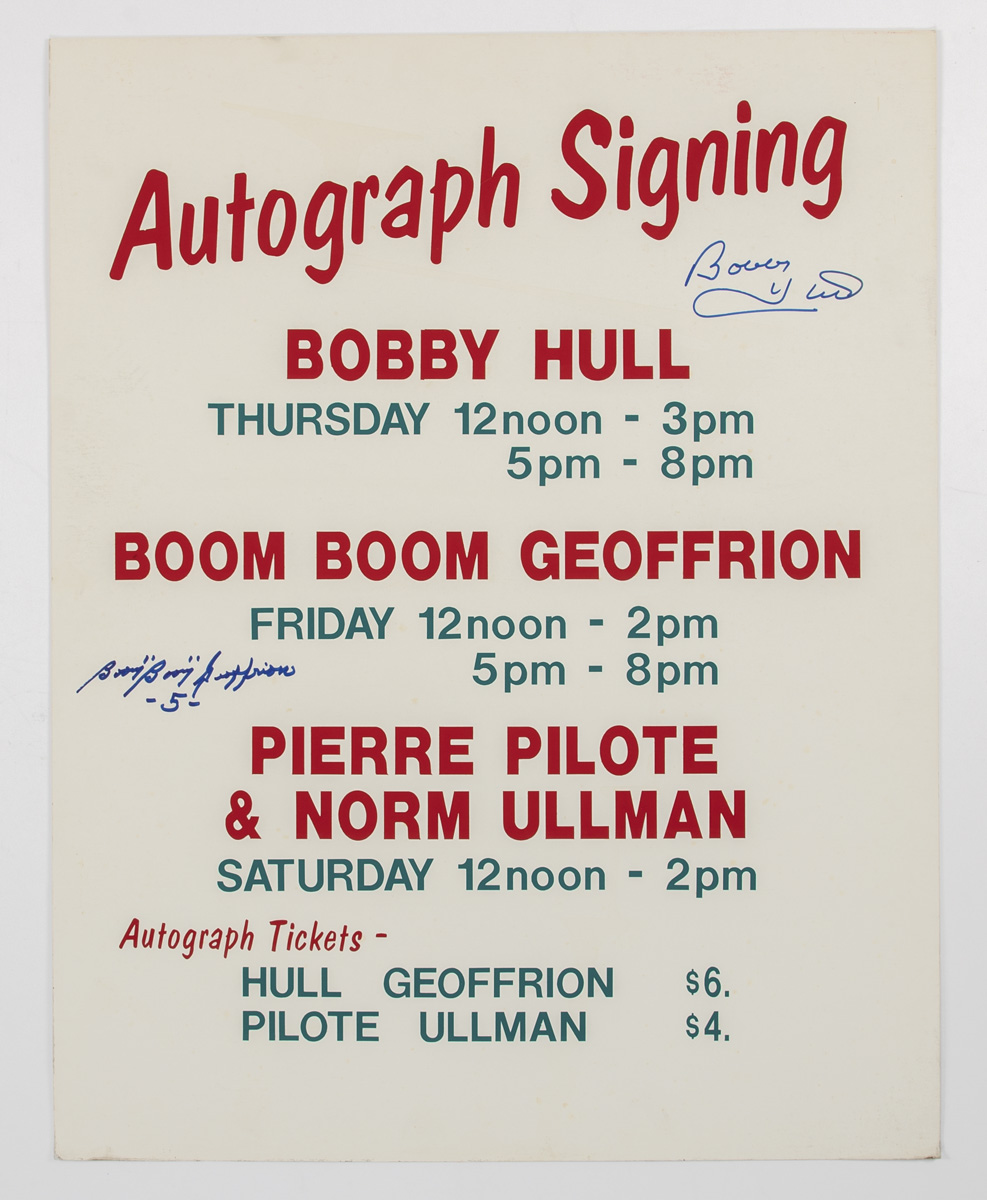 Autograph Signing
Bobby Hull
BOBBY HULL
THURSDAY 12noon - 3pm
5pm - 8pm
BOOM BOOM GEOFFRION
FRIDAY 12noon - 2pm
5pm - 8pm
"Boom Boom" Geoffrion
-5-
PIERRE PILOTE
& NORM ULLMAN
SATURDAY 12noon - 2pm
Autograph Tickets -
HULL GEOFFRION $6.
PILOTE ULLMAN $4.